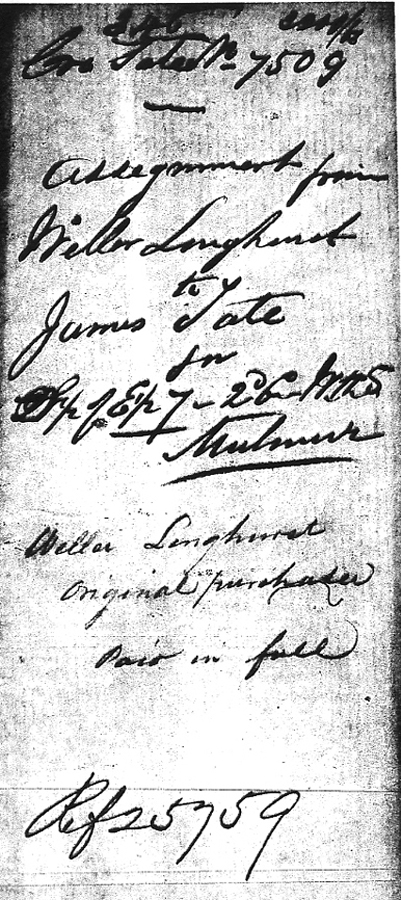 Cro Sales No 7509
Assignment from
Weller Longhurst
to
James Tate
for
Sp of E½ 7 - 2d C. W.H.S
Mulmur
Weller Longhurst
Original purchaser
Paid in full
Ref 25759